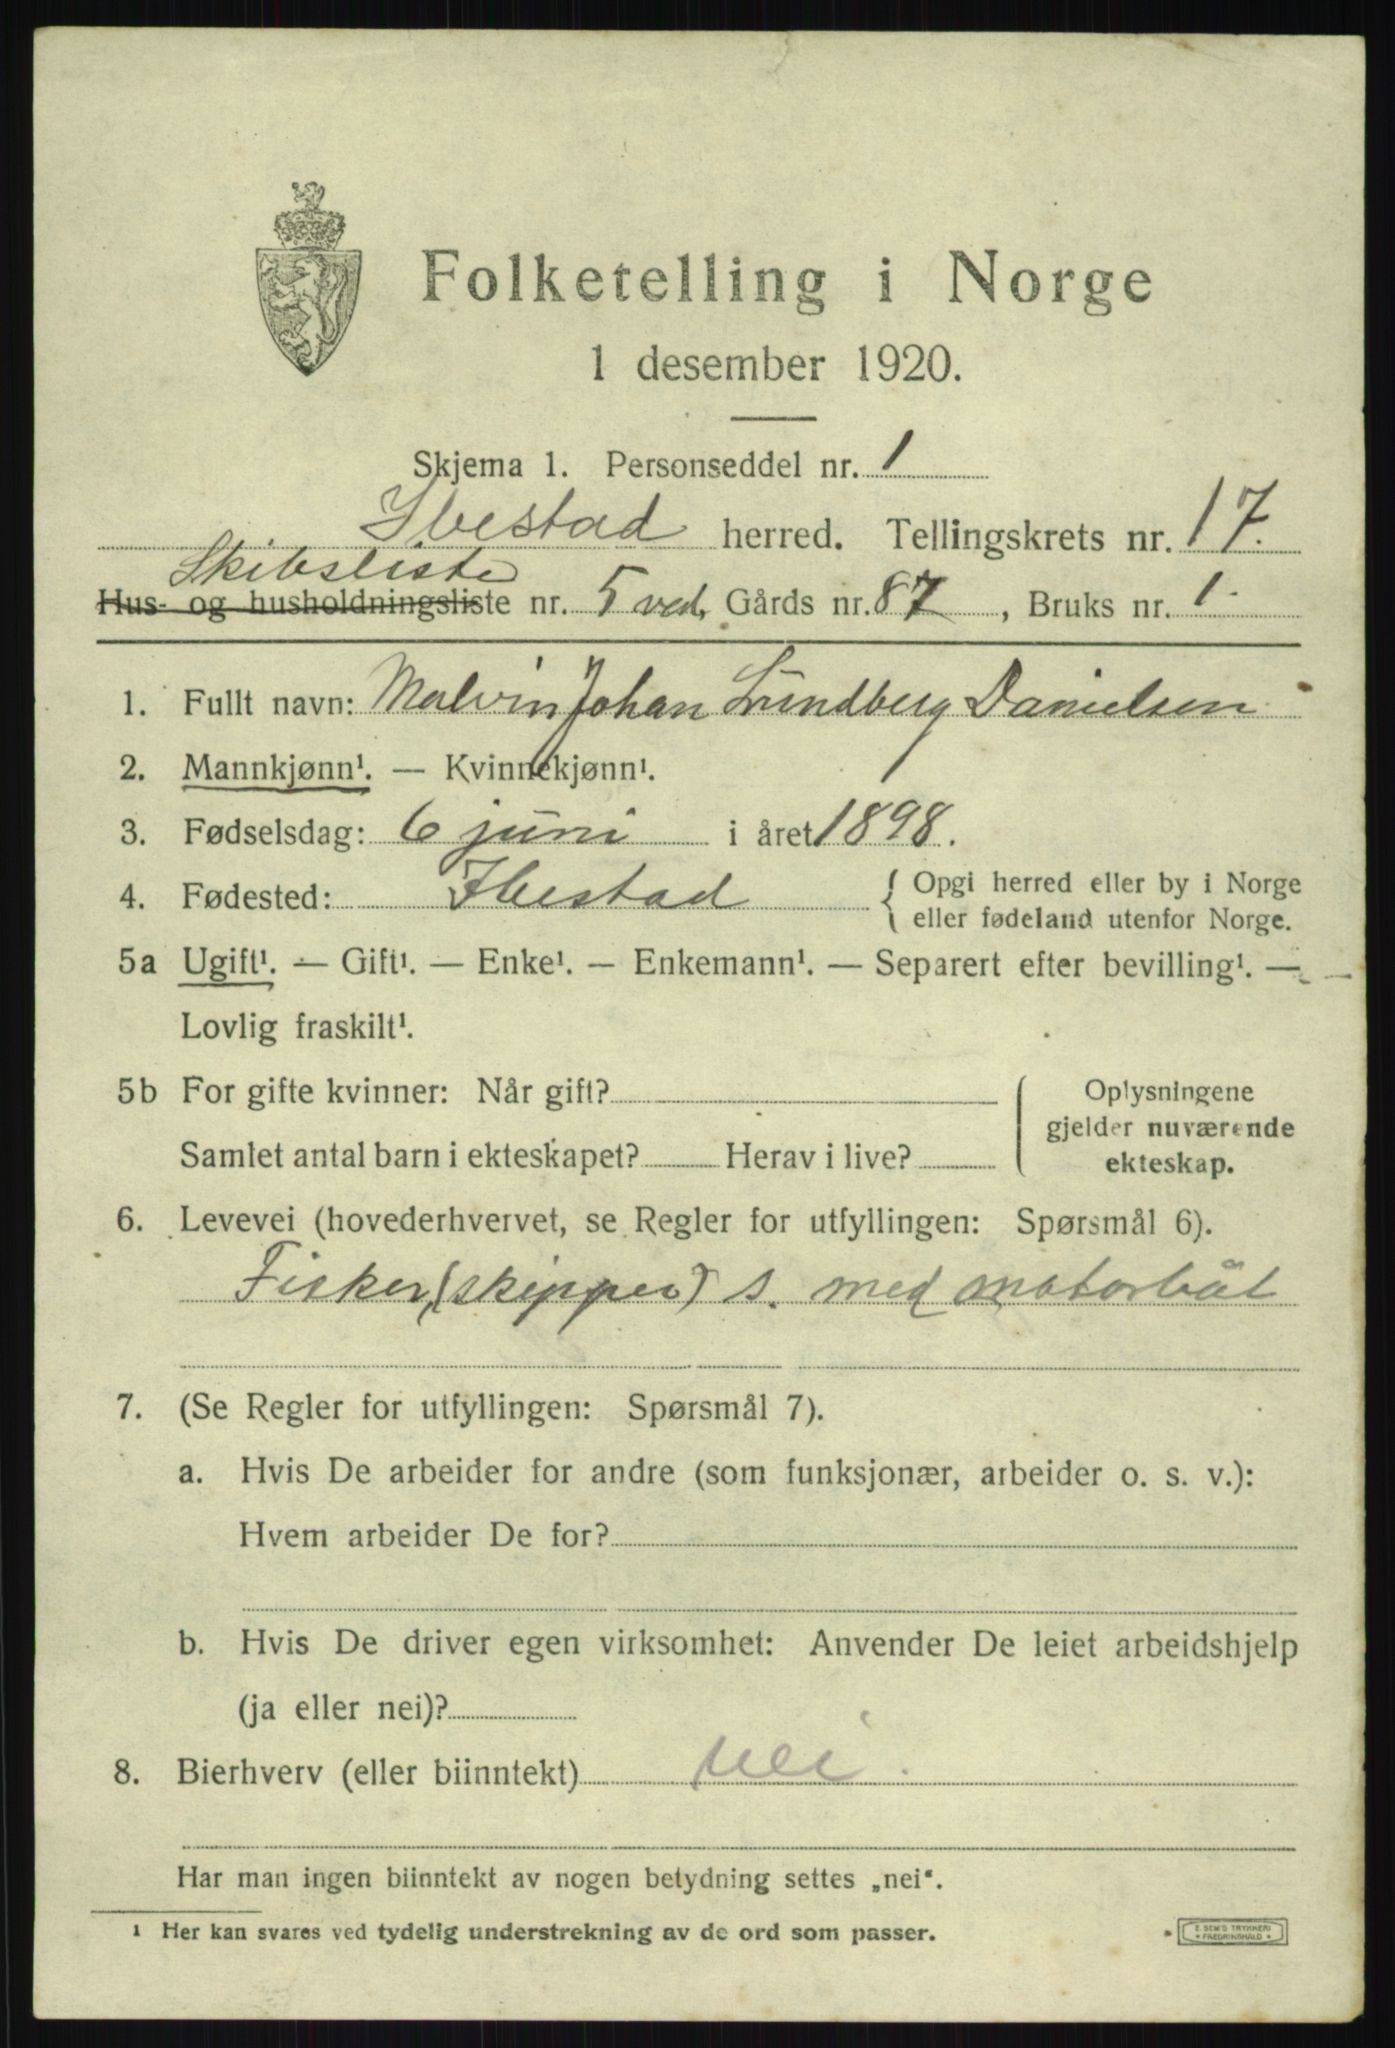 Folketelling i Norge
1 desember 1920.
Skjema 1. Personseddel nr. 1
Ibestad herred. Tellingskrets nr. 17.
Skibsliste
Hus- og husholdningsliste nr. 5 ved, Gårds nr. 87, Bruks nr. 1.
1. Fullt navn: Malvin Johan Lundberg Danielsen
2. Mannkjønn¹. — Kvinnekjønn¹.
3. Fødselsdag: 6 juni i året 1898.
4. Fødested: Ibestad { Opgi herred eller by i Norge
eller fødeland utenfor Norge.
5a Ugift¹. — Gift¹. — Enke¹. — Enkemann¹. — Separert efter bevilling¹. —
Lovlig fraskilt¹.
5b For gifte kvinner: Når gift? { Oplysningene
gjelder nuværende
Samlet antal barn i ekteskapet? Herav i live? ekteskap.
6. Levevei (hovederhvervet, se Regler for utfyllingen: Spørsmål 6).
Fisker, (skipper) s. med motorbåt
7. (Se Regler for utfyllingen: Spørsmål 7).
a. Hvis De arbeider for andre (som funksjonær, arbeider o. s. v.):
Hvem arbeider De for?
b. Hvis De driver egen virksomhet: Anvender De leiet arbeidshjelp
(ja eller nei)?
8. Bierhverv (eller biinntekt) nei.
Har man ingen biinntekt av nogen betydning settes „nei“.
¹ Her kan svares ved tydelig understrekning av de ord som passer.
E. SEM'S TRYKKERI
FREDRIKSHALD